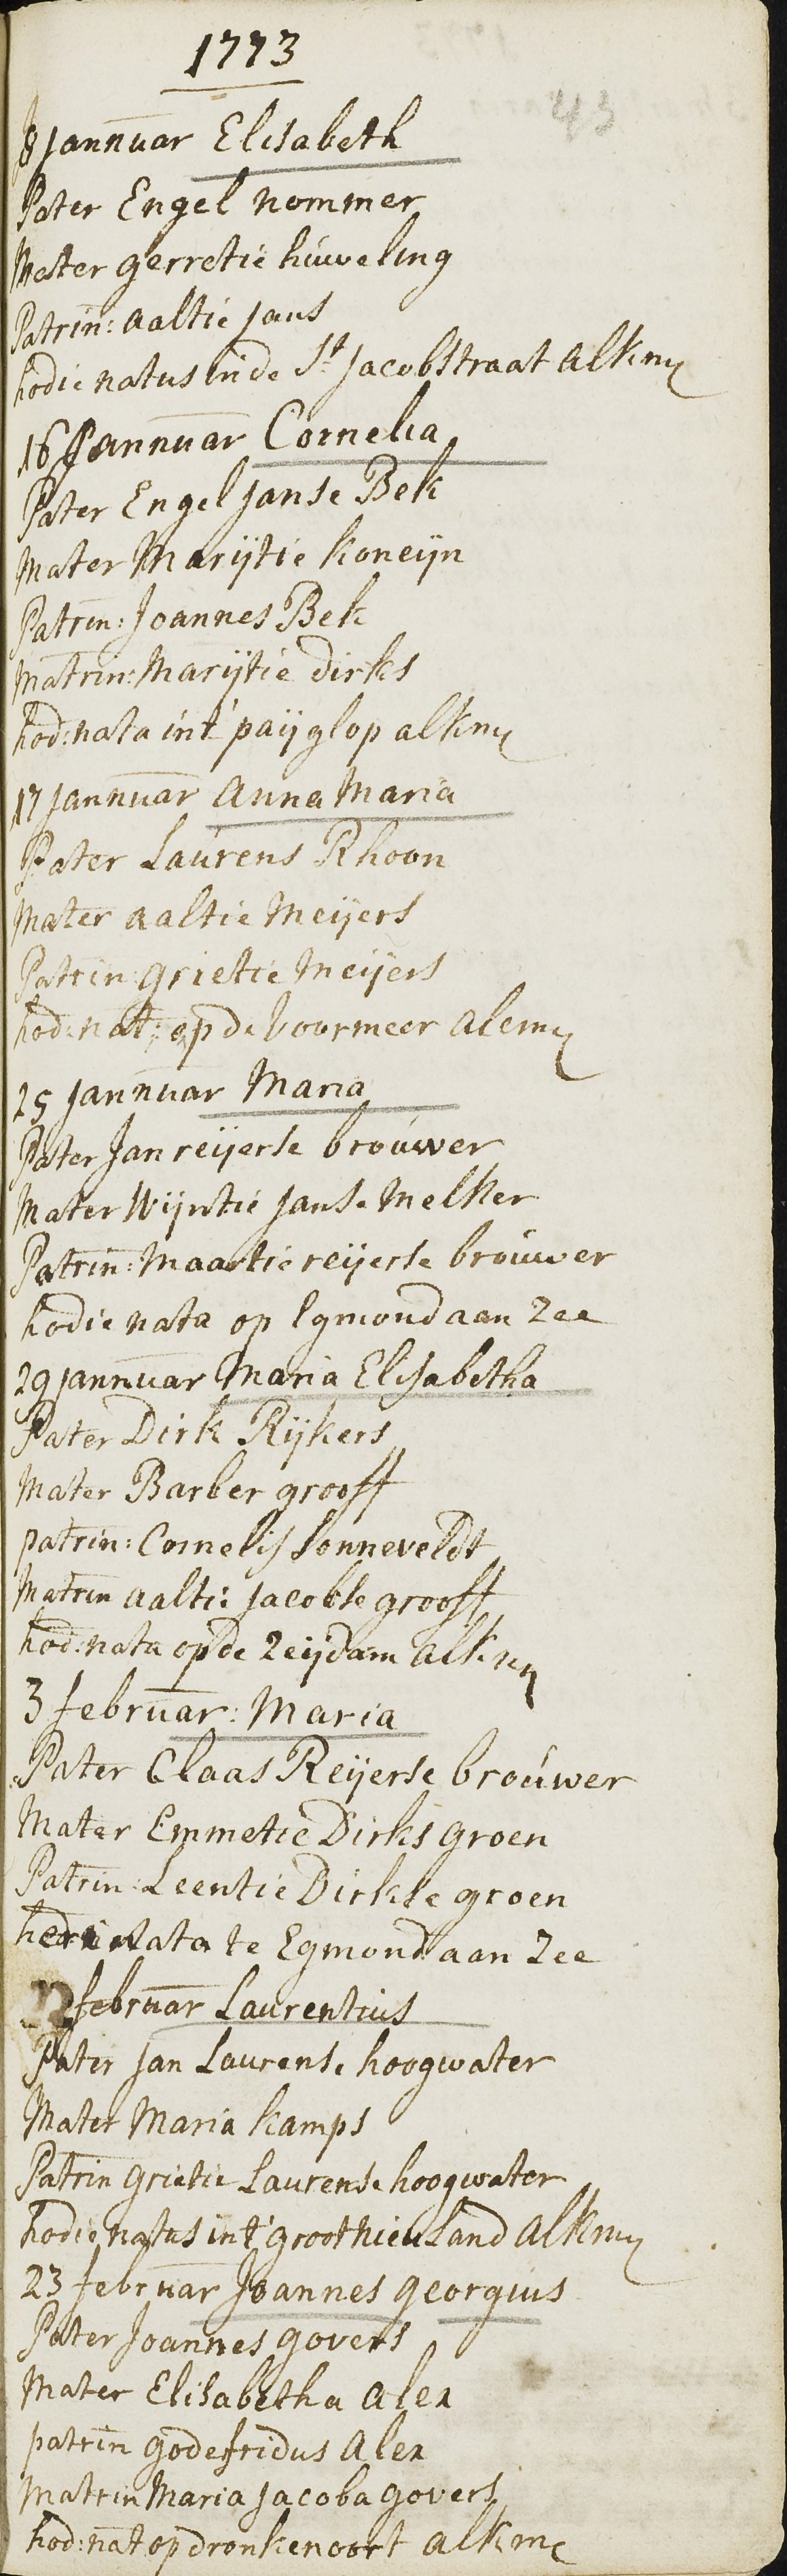 1773
43
8 Jannuar Elisabeth
Pater Engel nommer
Mater gerretie huweling
Patrin: aaltie Jans
hodie natus in de St Jacobstraat alkm
16 Jannuar Cornelia
Pater Engel Janse Bek
Mater Marijtie koneijn
Patrin: Joannes Bek
Matrin: Marijtie dirks
hod: nata int paijglop alkm
17 Jannuar anna Maria
Pater Laurens Rhoon
Mater aaltie Meijers
Patrin: grietie Meijers
hod: nat: op de Voormeer alcm
25 Jannuar Maria
Pater Jan reijerse brouwer
Mater Wijntie Janse Melker
Patrin: Maartie reijerse brouwer
hodie nata op Egmond aan Zee
29 Jannuar Maria Elisabetha
Pater Dirk Rijkers
Mater Barber grooff
patrin: Cornelis Sonneveldt
Matrin aaltie Jacobse grooff
hod: nata op de Zeijdam alkm
3 februar: Maria
Pater Claas Reijerse brouwer
Mater Emmetie Dirks groen
Patrin: Leentie Dirkse groen
hodie nata te Egmond aan Zee
februar Laurentius
Pater Jan Laurense hoogwater
Mater Maria kamps
Patrin grietie Laurense hoogwater
hodie natus int groot nieuland alkm
23 februar Joannes georgius
Pater Joannes govers
Mater Elisabetha alex
patrin godefridus alex
Matrin Maria Jacoba govers
hod: nat op dronkenoort alkm